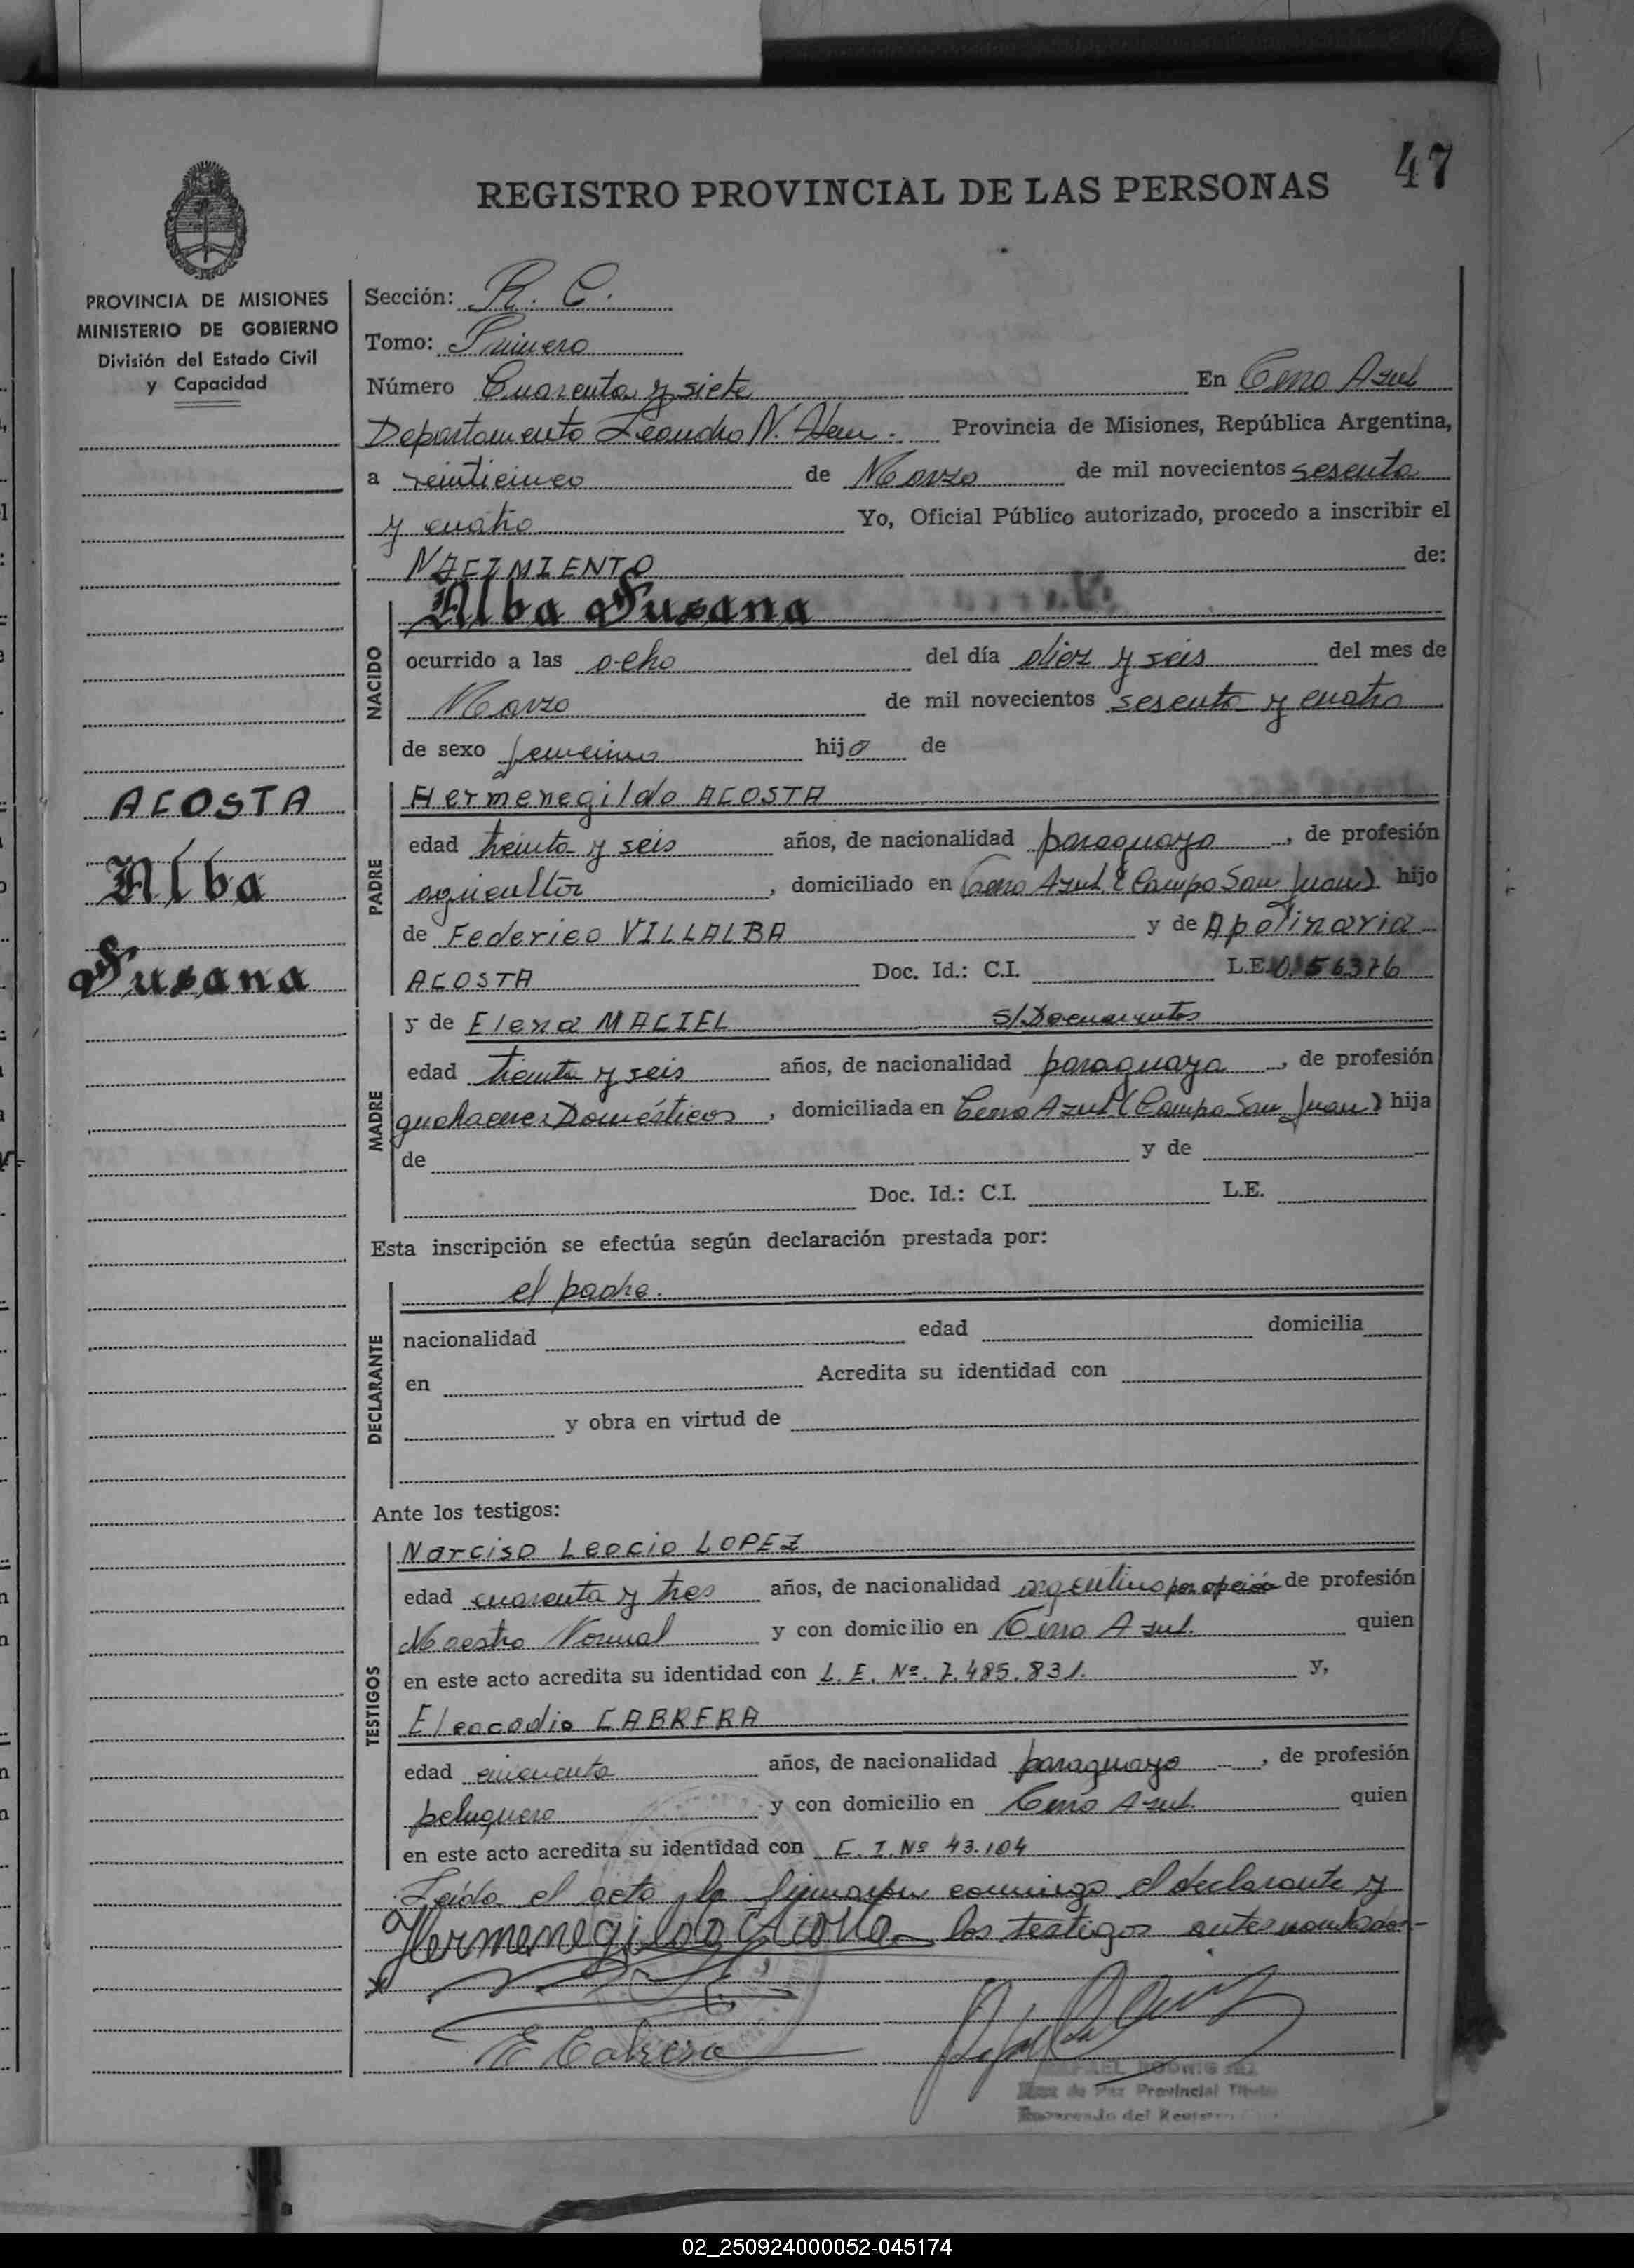 47
REGISTRO PROVINCIAL DE LAS PERSONAS
PROVINCIA DE MISIONES
MINISTERIO DE GOBIERNO
División del Estado Civil
y Capacidad
ACOSTA
Alba
Susana
Sección: R. C.
Tomo: Primero
Número Cuarenta y siete En Cerro Azul
Departamento Leandro N. Alem. Provincia de Misiones, República Argentina,
a veinticinco de Marzo de mil novecientos sesenta
y cuatro Yo, Oficial Público autorizado, procedo a inscribir el
NACIMIENTO de:
NACIDO
Alba Susana
ocurrido a las ocho del día diez y seis del mes de
Marzo de mil novecientos sesenta y cuatro
de sexo femenino hija de
PADRE
Hermenegildo ACOSTA
edad treinta y seis años, de nacionalidad paraguaya, de profesión
agricultor, domiciliado en Cerro Azul (Campo San Juan) hijo
de Federico VILLALBA y de Apolinaria
ACOSTA Doc. Id.: C.I. L.E.
MADRE
y de Elena MACIEL S/Documentos
edad treinta y seis años, de nacionalidad paraguaya, de profesión
quehaceres Domésticos, domiciliada en Cerro Azul (Campo San Juan) hija
de y de
Doc. Id.: C.I. L.E.
Esta inscripción se efectúa según declaración prestada por:
DECLARANTE
el padre.
nacionalidad edad domicilia
en Acredita su identidad con
y obra en virtud de
Ante los testigos:
TESTIGOS
Narciso Leocio LOPEZ
edad cuarenta y tres años, de nacionalidad argentino por opción de profesión
Maestro Normal y con domicilio en Cerro Azul. quien
en este acto acredita su identidad con L.E. Nº. 7.485.831. y,
Eleocadio CABRERA
edad cincuenta años, de nacionalidad paraguayo, de profesión
peluquero y con domicilio en Cerro Azul. quien
en este acto acredita su identidad con C.I. Nº 43.104
Leída el acta, la firmaron conmigo el declarante y
Hermenegildo Acosta los testigos antes nombrados.-
E Cabrera
Juez de Paz Provincial Titular
Encargado del Registro
02_250924000052-045174